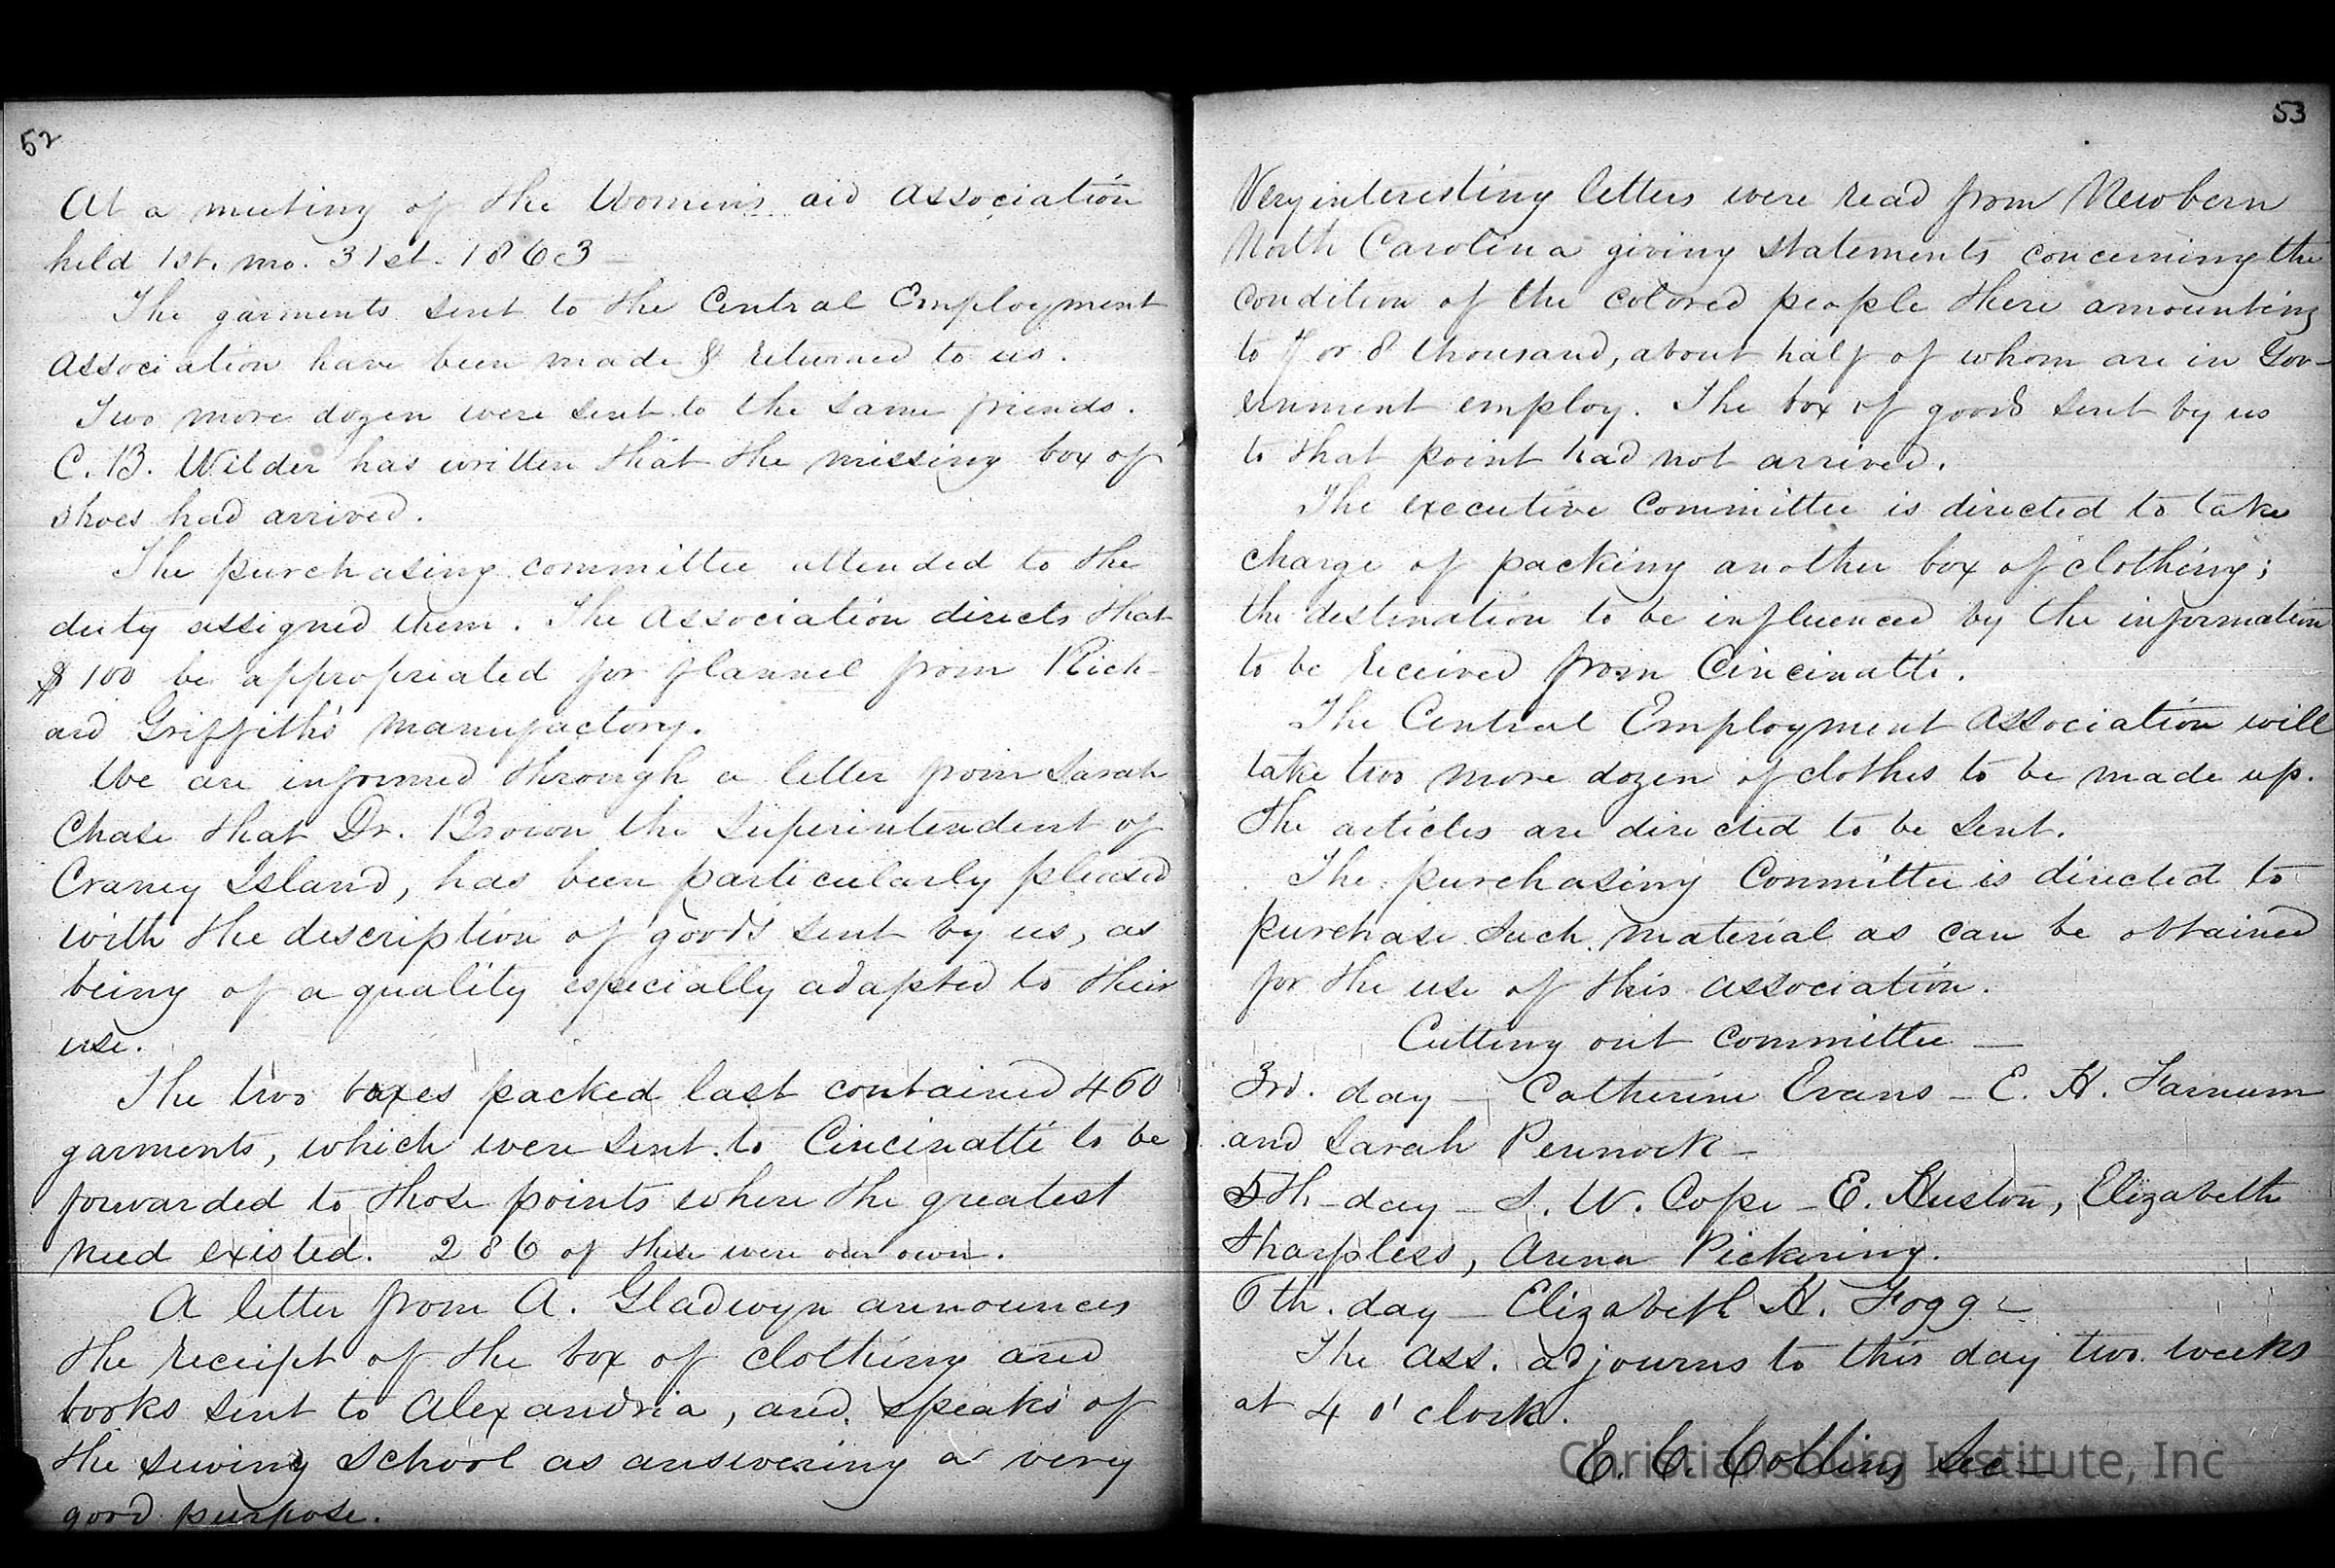 52
At a meeting of the Women's aid association
held 1st. mo. 31st. 1863 –
The garments sent to the Central Employment
association have been made & returned to us.
Two more dozen were sent to the same friends.
C. B. Wilder has written that the missing box of
shoes had arrived.
The purchasing committee attended to the
duty assigned them. The association directs that
$100 be appropriated for flannel from Rich-
ard Griffith's manufactory.
We are informed through a letter from Sarah
Chase that Dr. Brown the Superintendent of
Craney Island, has been particularly pleased
with the description of goods sent by us, as
being of a quality especially adapted to their
use.
The two boxes packed last contained 460
garments, which were sent to Cincinatti to be
forwarded to those points where the greatest
need existed. 286 of these were our own.
A letter from A. Gladwyn announces
the receipt of the box of clothing and
books sent to Alexandria, and speaks of
the sewing school as answering a very
good purpose.
53
Very interesting letters were read from Newbern
North Carolina giving statements concerning the
condition of the colored people there amounting
to 7 or 8 thousand, about half of whom are in Gov-
ernment employ. The box of goods sent by us
to that point had not arrived.
The executive Committee is directed to take
charge of packing another box of clothing;
the destination to be influenced by the information
to be received from Cincinatti.
The Central Employment association will
take two more dozen of clothes to be made up.
The articles are directed to be sent.
The purchasing Committee is directed to
purchase such material as can be obtained
for the use of this association.
Cutting out committee –
3rd. day – Catherine Evans – E. H. Farnum
and Sarah Pennock –
5th – day – S. W. Cope – E. Huston, Elizabeth
Sharpless, Anna Pickering.
6th. day – Elizabeth H. Fogg –
The ass. adjourns to this day two weeks
at 4 o'clock.
E. C. Collins Sec –
Christiansburg Institute, Inc